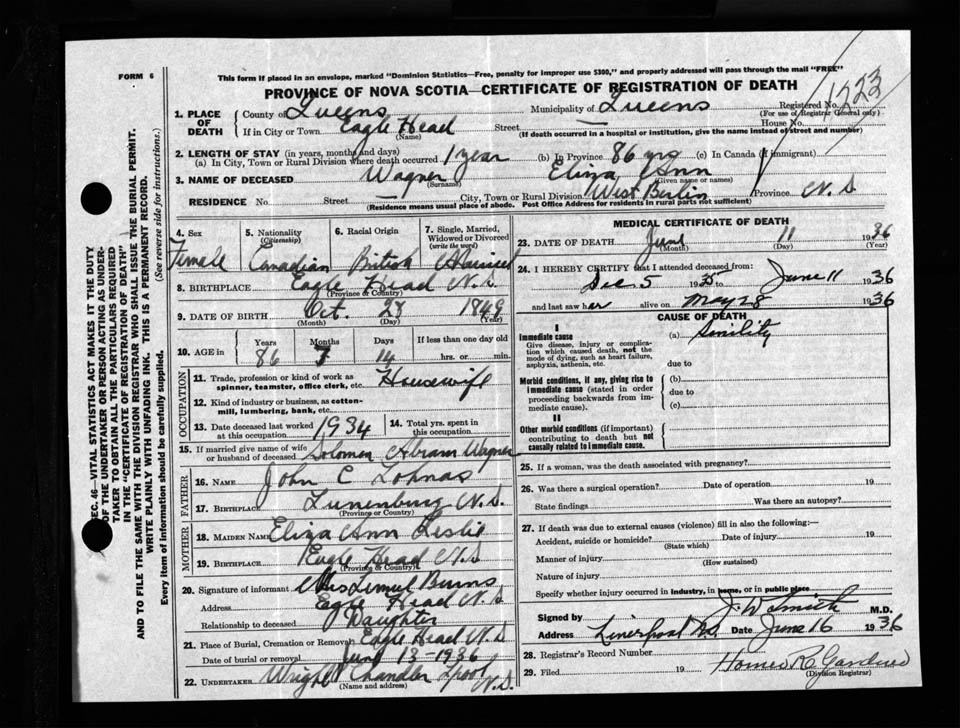 FORM 6
This form if placed in an envelope, marked "Dominion Statistics—Free, penalty for improper use $300," and properly addressed will pass through the mail "FREE"
PROVINCE OF NOVA SCOTIA—CERTIFICATE OF REGISTRATION OF DEATH
1223
1. PLACE OF DEATH
County of Queens Municipality of Queens Registered No.
(For use of Registrar General only)
If in City or Town Eagle Head Street — House No.
(Name) (If death occurred in a hospital or institution, give the name instead of street and number)
2. LENGTH OF STAY (in years, months and days)
(a) In City, Town or Rural Division where death occurred 1 year (b) In Province 86 yrs (c) In Canada (if immigrant)
3. NAME OF DECEASED Wagner Eliza Ann
(Surname) (Given name or names)
RESIDENCE No. Street City, Town or Rural Division West Berlin Province N.S
(Residence means usual place of abode. Post Office Address for residents in rural parts not sufficient)
4. Sex 5. Nationality (Citizenship) 6. Racial Origin 7. Single, Married, Widowed or Divorced (write the word)
Female Canadian British Married
8. BIRTHPLACE Eagle Head N.S.
(Province or Country)
9. DATE OF BIRTH Oct. 28 1849
(Month) (Day) (Year)
10. AGE in Years Months Days If less than one day old
86 7 14 hrs. or min.
OCCUPATION
11. Trade, profession or kind of work as spinner, teamster, office clerk, etc. Housewife
12. Kind of industry or business, as cotton-mill, lumbering, bank, etc.
13. Date deceased last worked at this occupation 1934 14. Total yrs. spent in this occupation
15. If married give name of wife or husband of deceased Solomon Abram Wagner
FATHER
16. NAME John C Lohnas
17. BIRTHPLACE Lunenburg N.S.
(Province or Country)
MOTHER
18. MAIDEN NAME Eliza Ann Leslie
19. BIRTHPLACE Eagle Head N.S
(Province or Country)
20. Signature of informant Mrs Lemuel Burns
Address Eagle Head N.S
Relationship to deceased Daughter
21. Place of Burial, Cremation or Removal Eagle Head N.S
Date of burial or removal June 13-1936
22. UNDERTAKER Wright Chandler Lpool N.S.
(Name and address)
MEDICAL CERTIFICATE OF DEATH
23. DATE OF DEATH June 11 1936
(Month) (Day) (Year)
24. I HEREBY CERTIFY that I attended deceased from:
Dec. 5 1935 to June 11 1936
and last saw her alive on May 28 1936
CAUSE OF DEATH
I
Immediate cause (a) Senility
Give disease, injury or complication which caused death, not the mode of dying, such as heart failure, asphyxia, asthenia, etc. due to
Morbid conditions, if any, giving rise to immediate cause (stated in order proceeding backwards from immediate cause). (b)
due to
(c)
II
Other morbid conditions (if important) contributing to death but not causally related to immediate cause.
25. If a woman, was the death associated with pregnancy?
26. Was there a surgical operation? Date of operation 19
State findings Was there an autopsy?
27. If death was due to external causes (violence) fill in also the following:—
Accident, suicide or homicide? Date of injury 19
(State which)
Manner of injury
(How sustained)
Nature of injury
Specify whether injury occurred in industry, in home, or in public place
Signed by J. W Smith M.D.
Address Liverpool N.S. Date June 16 1936
28. Registrar's Record Number
29. Filed 19 Homer R. Gardner
(Division Registrar)
SEC. 46—VITAL STATISTICS ACT MAKES IT THE DUTY
OF THE UNDERTAKER OR PERSON ACTING AS UNDER-
TAKER TO OBTAIN ALL THE PARTICULARS REQUIRED
IN THE "CERTIFICATE OF REGISTRATION OF DEATH"
AND TO FILE THE SAME WITH THE DIVISION REGISTRAR WHO SHALL ISSUE THE BURIAL PERMIT.
WRITE PLAINLY WITH UNFADING INK. THIS IS A PERMANENT RECORD.
Every item of information should be carefully supplied. (See reverse side for instructions.)